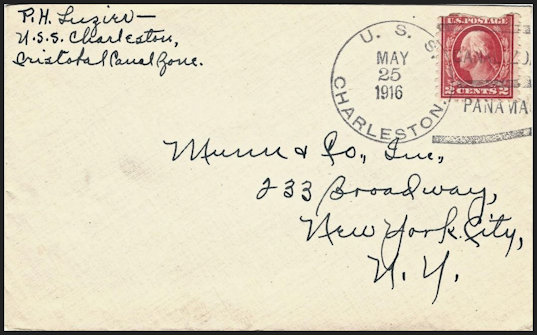 P. H. Luzier—
U.S.S. Charleston,
Cristobal Canal Zone.
U. S. S.
MAY
25
1916
CHARLESTON.
U.S. POSTAGE
2 CENTS 2
PANAMA.
Munn & Co., Inc.,
233 Broadway,
New York City,
N. Y.